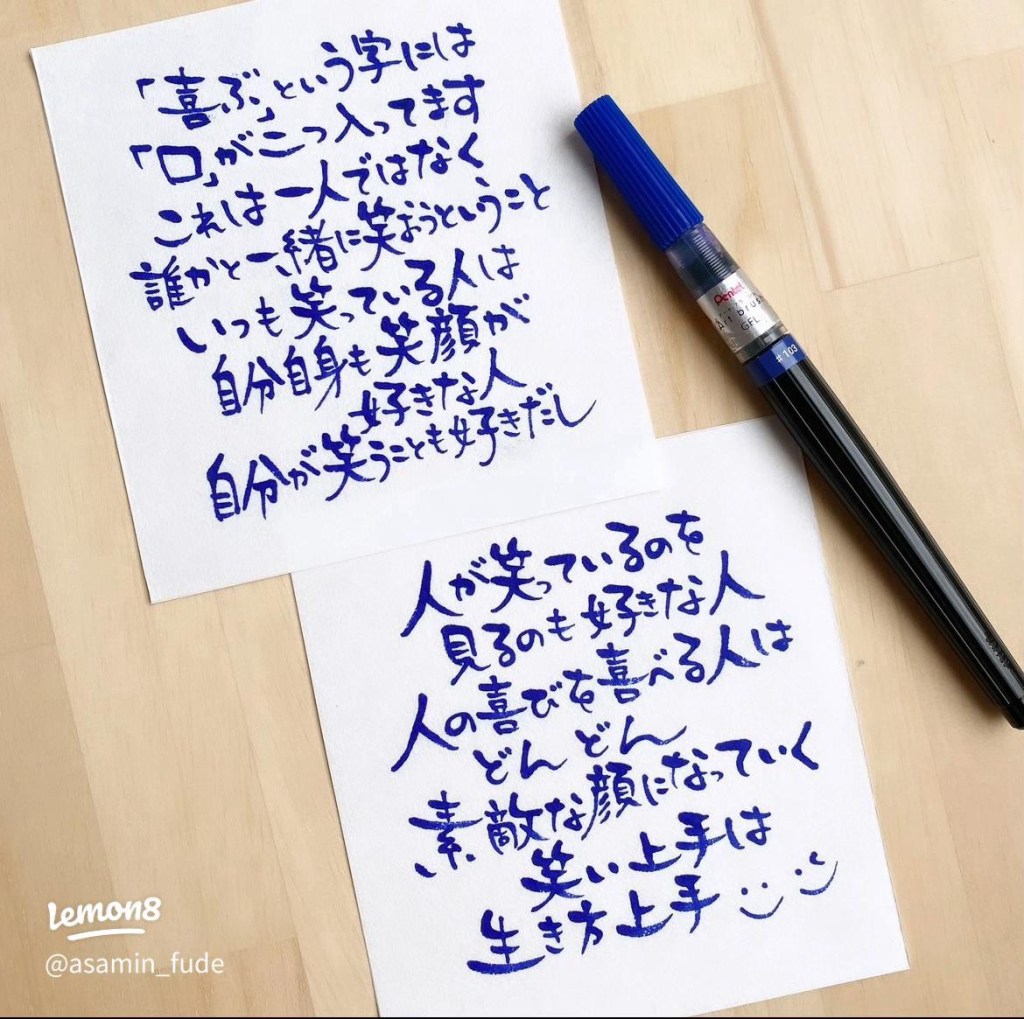 「喜ぶ」という字には
「口」が二つ入ってます
これは一人ではなく
誰かと一緒に笑おうということ
いつも笑っている人は
自分自身も笑顔が
好きな人
自分が笑うことも好きだし
人が笑っているのを
見るのも好きな人
人の喜びを喜べる人は
どんどん
素敵な顔になっていく
笑い上手は
生き方上手
Pentel
Art brush
GFL
#103
Lemon8
@asamin_fude